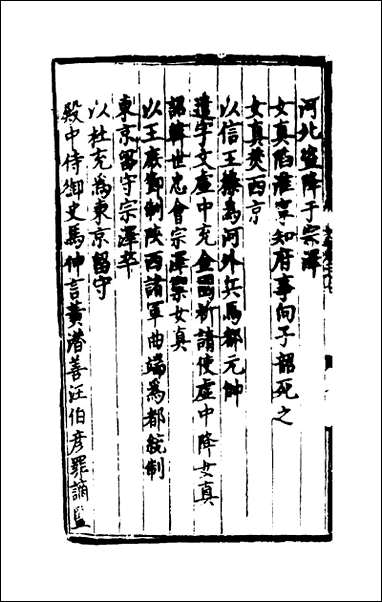 河北盜降于宗澤
女真陷淮寧知府事向子韶死之
女真焚西京
以信王榛爲河外兵馬都元帥
遣宇文虛中充金國祈請使虛中降女真
詔韓世忠會宗澤禦女真
以王庶節制陝西諸軍曲端爲都統制
東京留守宗澤卒
以杜充爲東京留守
殿中侍御史馬伸言黃潛善汪伯彥罪謫監